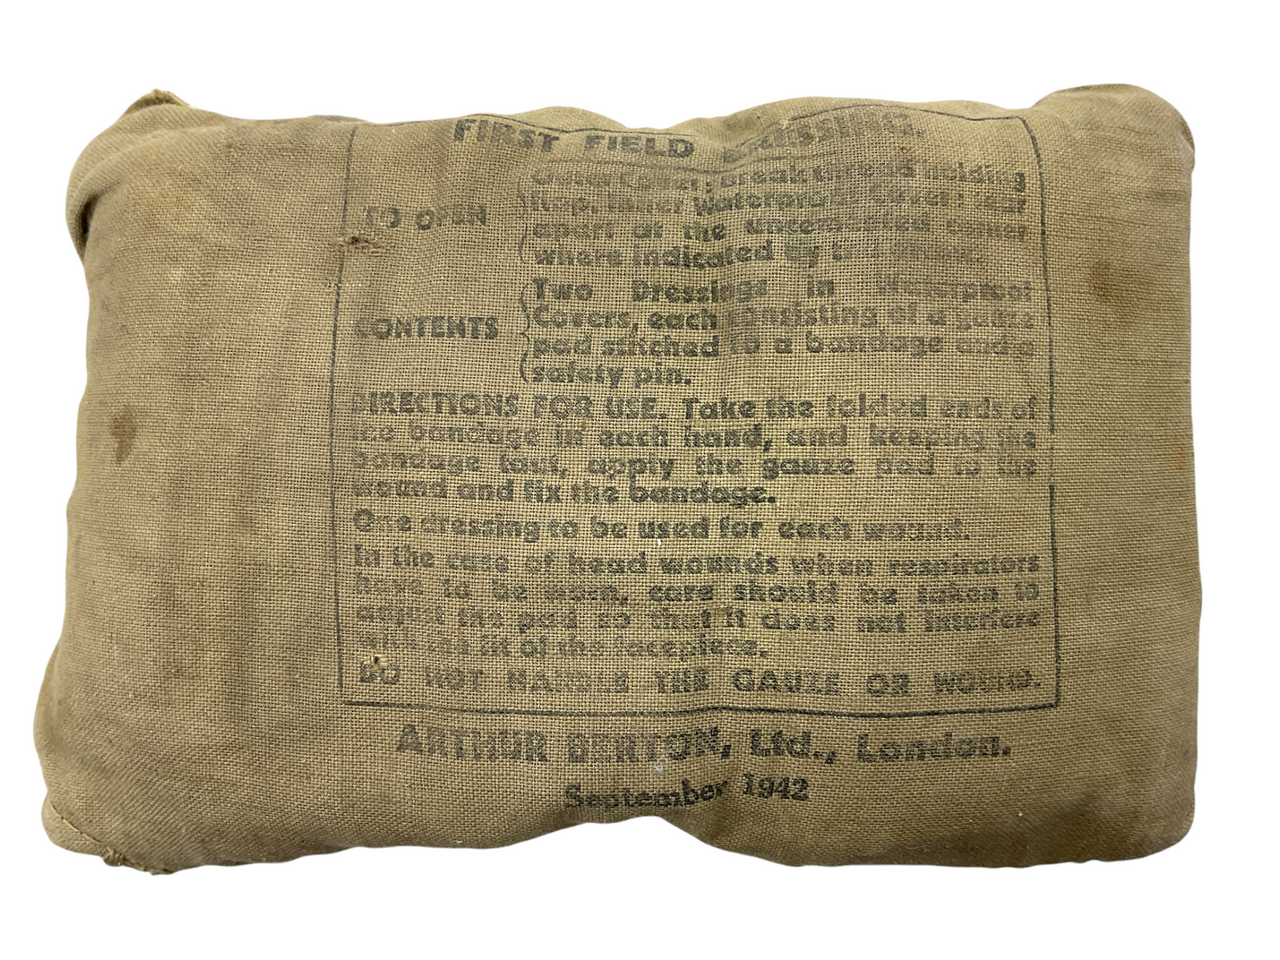 FIRST FIELD DRESSING.
TO OPEN
Outer Cover: Break thread holding
flap. Inner Waterproof Cover: Tear
apart at the uncemented corner
where indicated by the arrow.
CONTENTS
Two Dressings in Waterproof
Covers, each consisting of a gauze
pad stitched to a bandage and a
safety pin.
DIRECTIONS FOR USE. Take the folded ends of
the bandage in each hand, and keeping the
bandage taut, apply the gauze pad to the
wound and fix the bandage.
One dressing to be used for each wound.
In the case of head wounds when respirators
have to be worn, care should be taken to
adjust the pad so that it does not interfere
with the fit of the facepiece.
DO NOT HANDLE THE GAUZE OR WOUND.
ARTHUR BERTON, Ltd., London.
September 1942